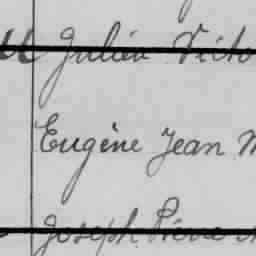 Julien Victo
Eugène Jean M
Joseph Pierre